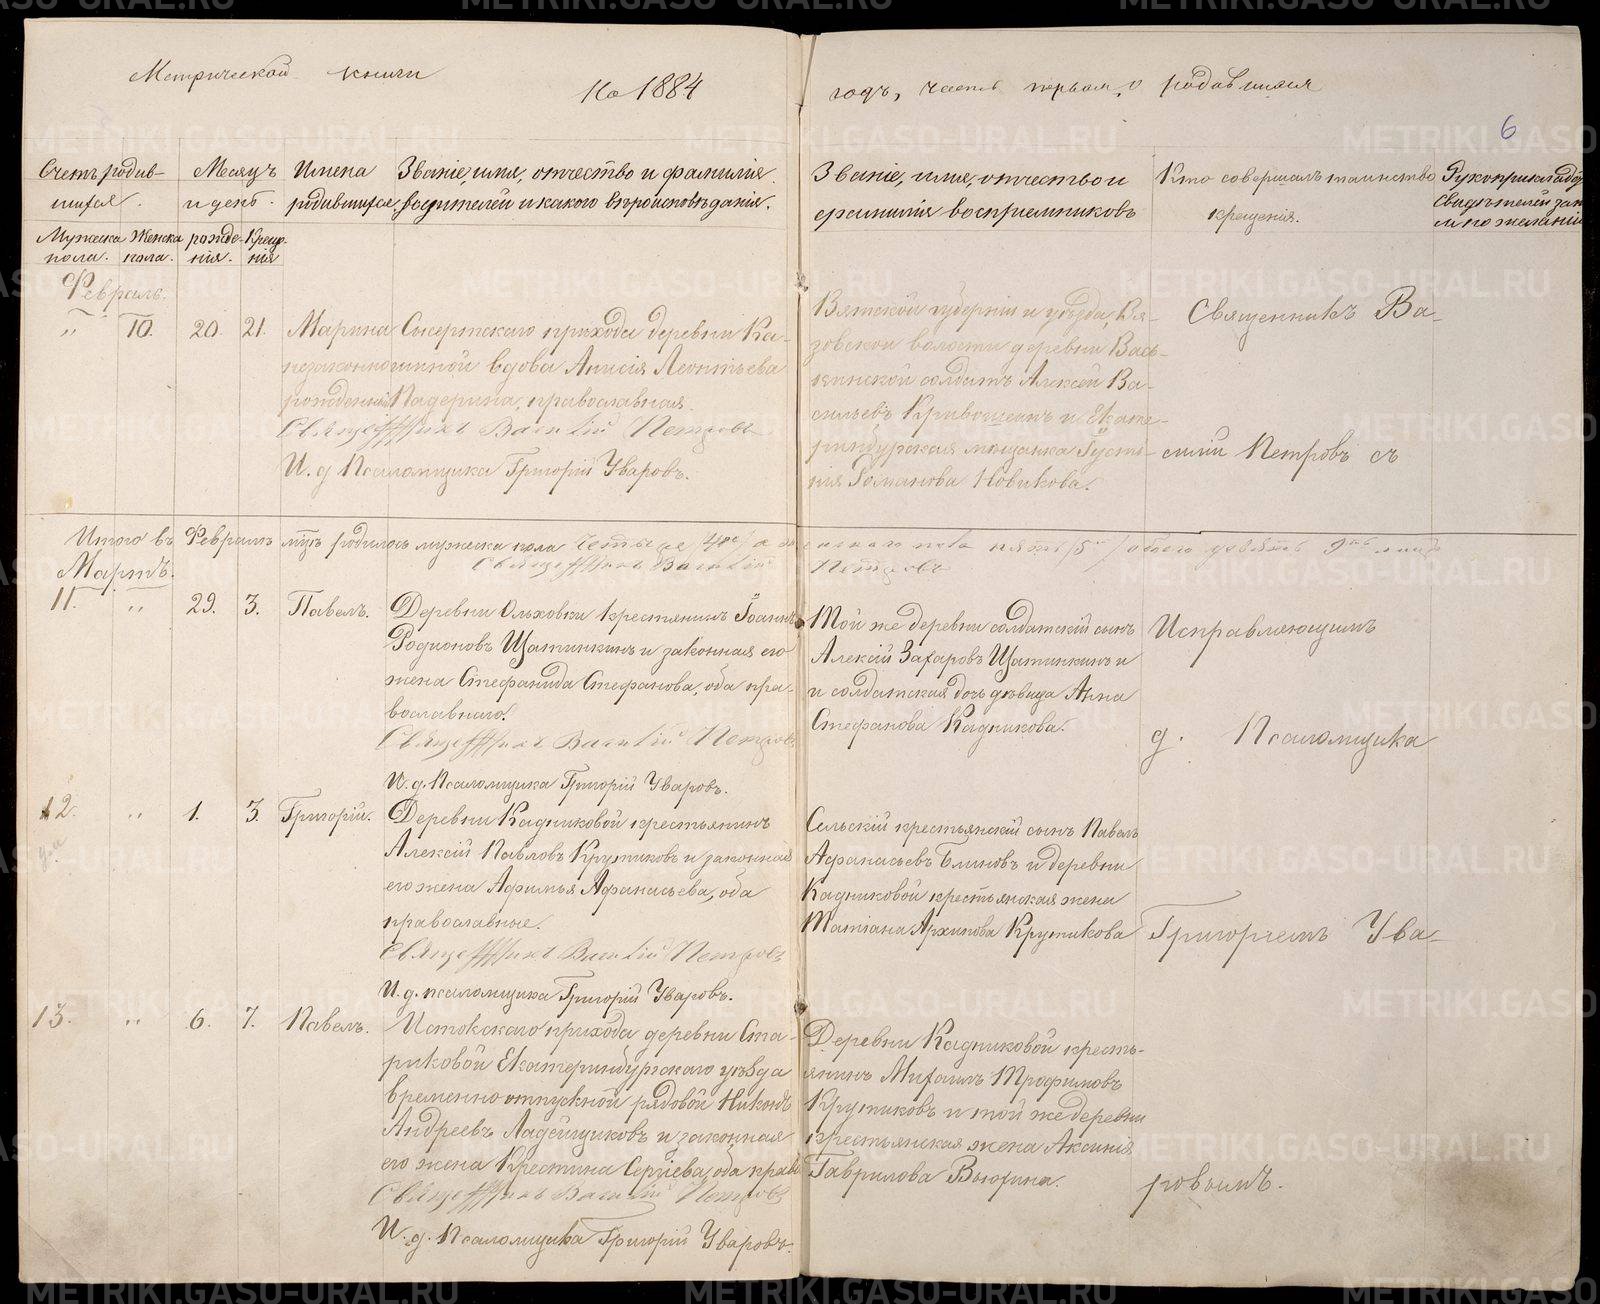 Метрической книги
На 1884
годъ, часть первая, о родившихся
6
Счетъ родив-
шихся.
Месяцъ
и день.
Имена
родившихся
Званіе, имя, отчество и фамилія
родителей и какого вѣроисповѣданія.
Званіе, имя, отчество и
фамилія воспріемниковъ
Кто совершалъ таинство
крещенія.
Рукоприкладс
свидѣтелей зап
и по желанію
Мужеска
пола.
Женска
пола.
рожде-
нія.
Креще-
нія
Февраль.
„ 10. 20. 21. Марина
незаконно
рожденная
Сысертскаго прихода деревни Ка-
шиной вдова Анисія Леонтьева
Падерина, православная.
Священникъ Василій Петровъ
И. д. Псаломщика Григорій Уваровъ.
Вятской губерніи и уѣзда, Вя-
зовской волости деревни Вась-
кинской солдатъ Алексѣй Ва-
сильевъ Кривошеинъ и Екате-
ринбургская мѣщанка Густи-
нія Романова Новикова.
Священникъ Ва-
силій Петровъ съ
Итого въ Февралѣ мцѣ родилось мужеска пола четыре /4ре/ а женскаго пола пять /5/ обоего девять 9
Священникъ Василій Петровъ
Мартъ.
11. „ 29. 3. Павелъ.
Деревни Ольховки крестьянинъ Іоаннъ
Родионовъ Щатинкинъ и законная его
жена Стефанида Стефанова, оба пра-
вославнаго.
Священникъ Василій Петровъ
И. д. Псаломщика Григорій Уваровъ.
Той же деревни солдатскій сынъ
Алексій Захаровъ Щатинкинъ и
и солдатская дочь дѣвица Анна
Стефанова Кадникова.
Исправляющимъ
д. Псаломщика
12. „ 1. 3. Григорій.
Деревни Кадниковой крестьянинъ
Алексій Павловъ Крутиковъ и законная
его жена Афимья Афанасьева, оба
православные.
Священникъ Василій Петровъ
И. д. псаломщика Григорій Уваровъ.
Сельскій крестьянскій сынъ Павелъ
Афанасьевъ Блиновъ и деревни
Кадниковой крестьянская жена
Татіана Архипова Крутикова
Григоріемъ Ува-
13. „ 6. 7. Павелъ.
Истокскаго прихода деревни Ста-
риковой Екатеринбургскаго уѣзда
временно отпускной рядовой Никонъ
Андреевъ Ладейщиковъ и законная
его жена Крестина Сергіева, оба прав
Священникъ Василій Петровъ
И. д. Псаломщика Григорій Уваровъ.
Деревни Кадниковой кресть-
янинъ Михаилъ Трофимовъ
Крутиковъ и той же деревни
крестьянская жена Аксинія
Гаврилова Вьюхина.
ровымъ.
METRIKI.GASO-URAL.RU